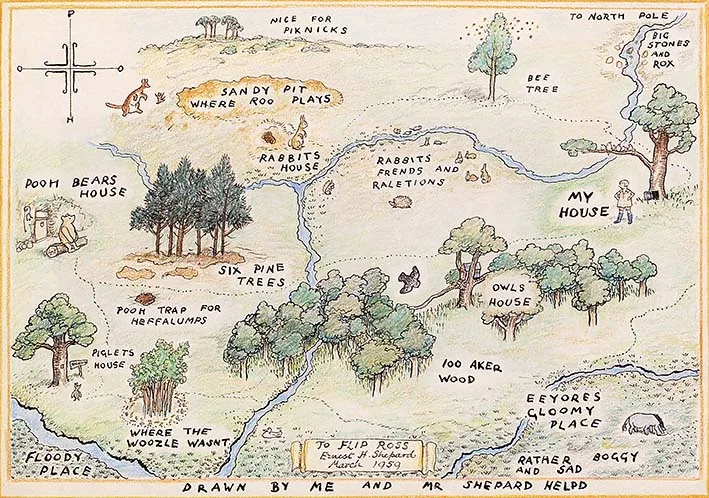 NICE FOR
PIKNICKS
TO NORTH POLE
BIG
STONES
AND
ROX
P
H
BEE
TREE
SANDY PIT
WHERE ROO PLAYS
RABBITS
HOUSE
RABBITS
FRENDS AND
RALETIONS
POOH BEARS
HOUSE
MY
HOUSE
SIX PINE
TREES
OWLS
HOUSE
POOH TRAP FOR
HEFFALUMPS
PIGLETS
HOUSE
100 AKER
WOOD
EEYORES
GLOOMY
PLACE
WHERE THE
WOOZLE WASNT
FLOODY
PLACE
TO FLIP ROSS
Ernest H. Shepard
March 1959
RATHER BOGGY
AND SAD
DRAWN BY ME AND MR SHEPARD HELPD